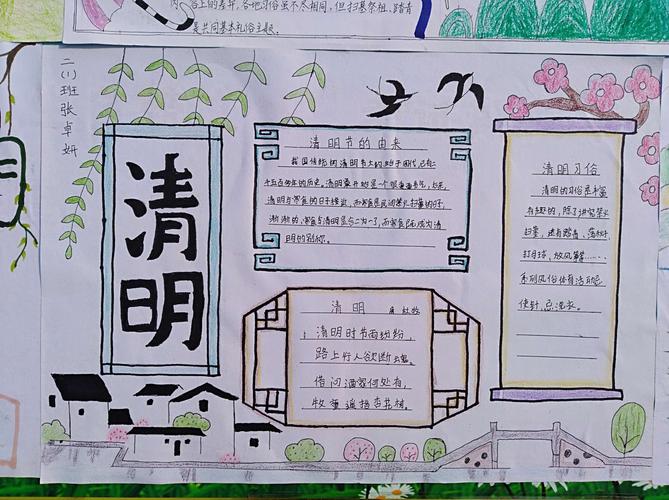 上的差异，各地习俗虽不尽相同，但扫墓祭祖、踏青
是共同基本礼俗主题。
二(1)班张卓妍
清明
清明节的由来
我国传统的清明节大约始于周代，已有
二千五百多年的历史。清明最开始是一个很重要节气，
清明与寒食的日子接近，而寒食是民间禁火扫墓的日子，
渐渐的，寒食与清明是合二为一了，而寒食既成为清
明的别称
清明
唐 杜牧
清明时节雨纷纷，
路上行人欲断魂。
借问酒家何处有，
牧童遥指杏花村。
清明习俗
清明的习俗是丰富
有趣的，除了讲究禁火
扫墓，还有踏青、荡秋千、
打马球、放风筝……
系列风俗体育活动。